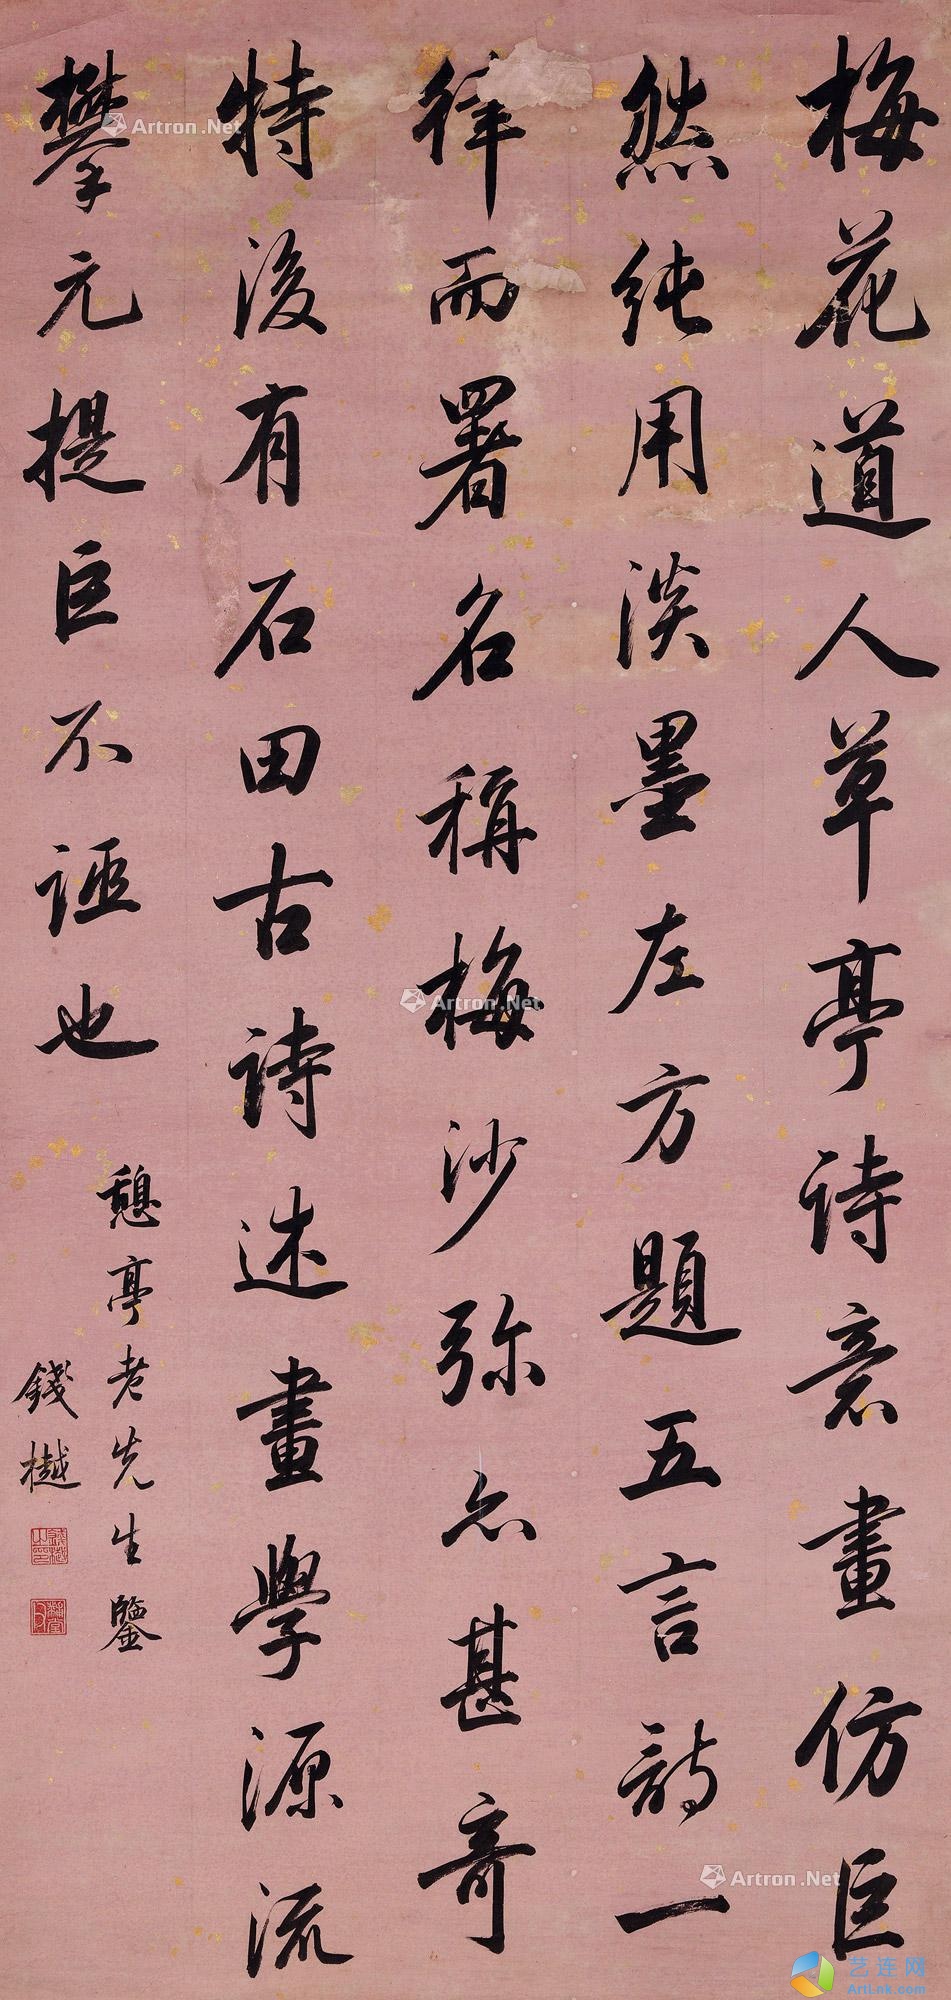 梅花道人草亭詩意畫仿巨
然純用淡墨左方題五言詩一
律而署名稱梅沙弥亦甚奇
特後有石田古詩述畫學源流
攀元提巨不誣也
憩亭老先生鑒
錢樾
錢樾之印
Artron.Net
Artron.Net
Artron.Net
艺连网
ArtLnk.com